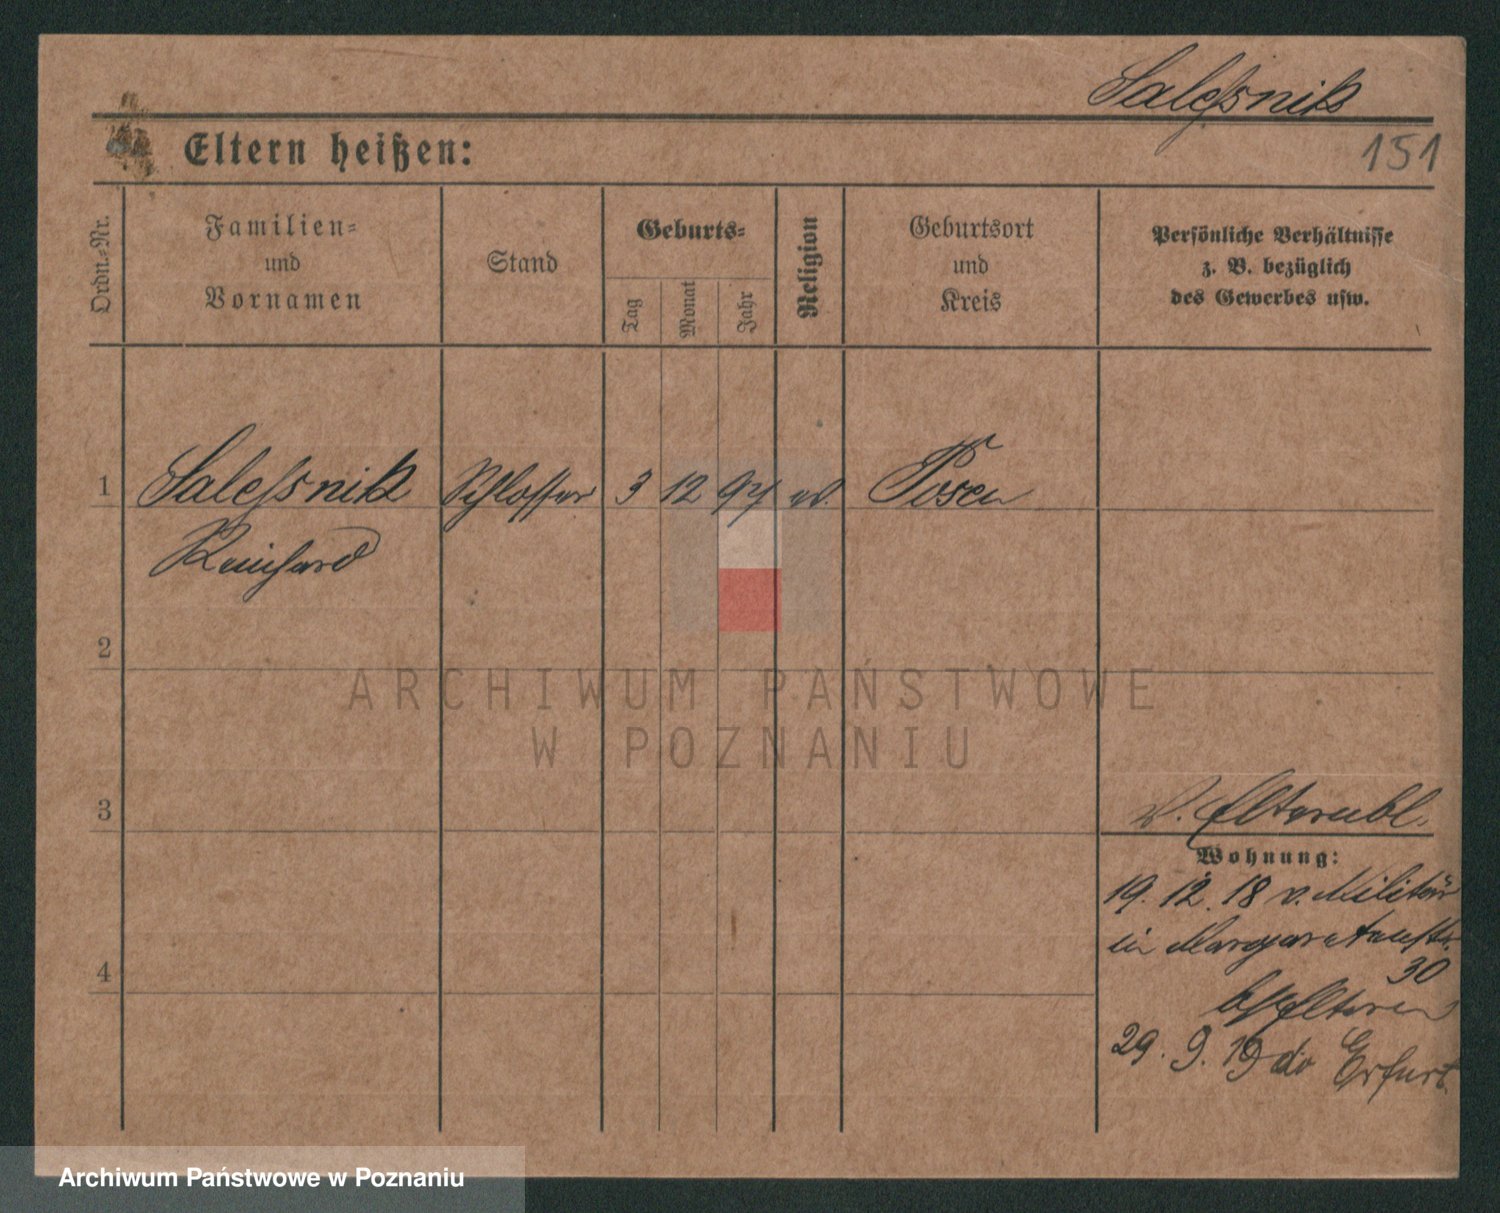 Saleßnik
151
Eltern heißen:
Ordn.-Nr.
Familien-
und
Vornamen
Stand
Geburts-
Tag
Monat
Jahr
Religion
Geburtsort
und
Kreis
Persönliche Verhältnisse
z. B. bezüglich
des Gewerbes usw.
1
Saleßnik Schlosser 3 12 94 Posen
Reinhard
2
ARCHIWUM PAŃSTWOWE
W POZNANIU
3
v. Elternbl.
Wohnung:
19. 12. 18 v. Militär
in Margaretenstr.
30
4
Eltern
29. 9. 19 do Erfurt
Archiwum Państwowe w Poznaniu